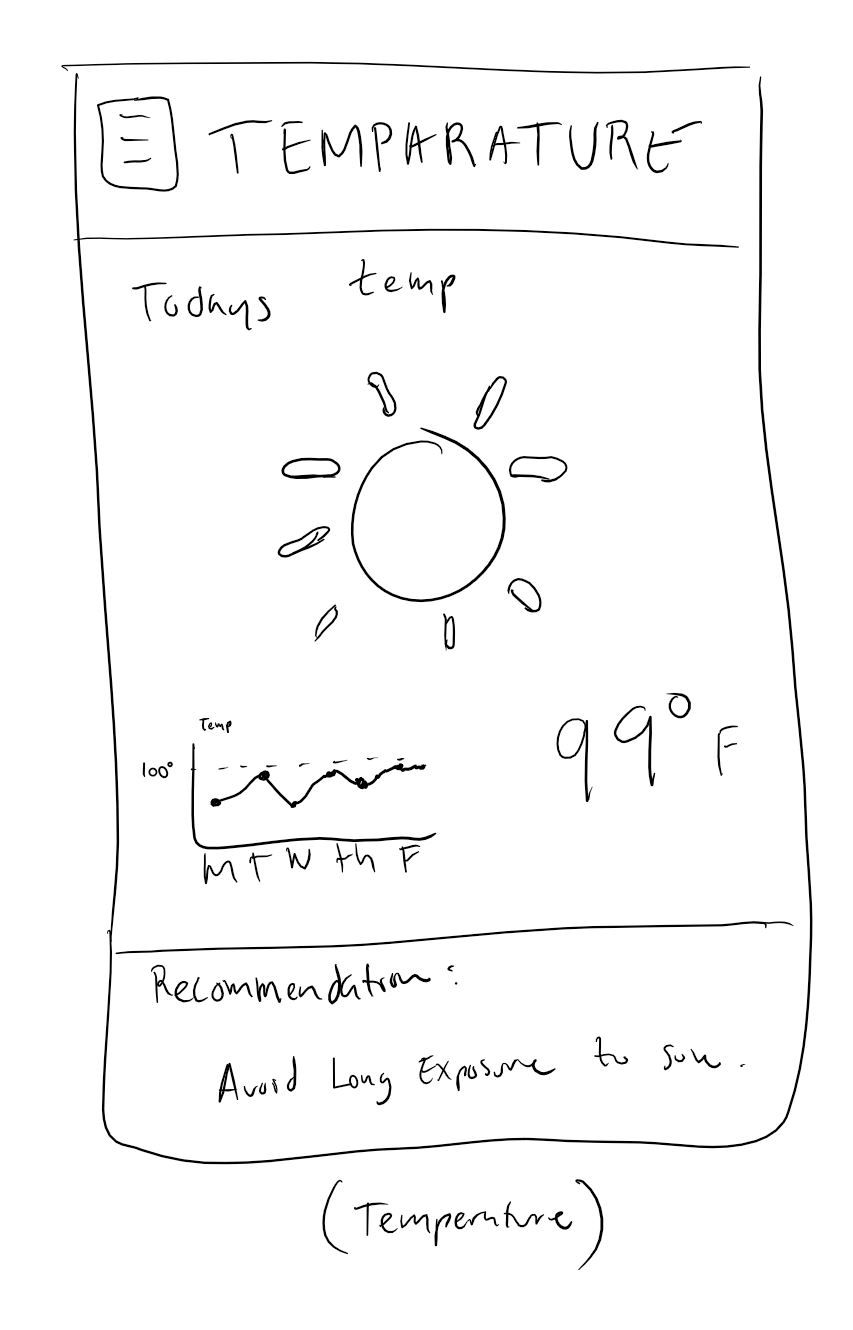 TEMPARATURE
Todays temp
Temp
100°
99° F
M T W th F
Recommendation:
Avoid Long Exposure to sun.
(Temperature)